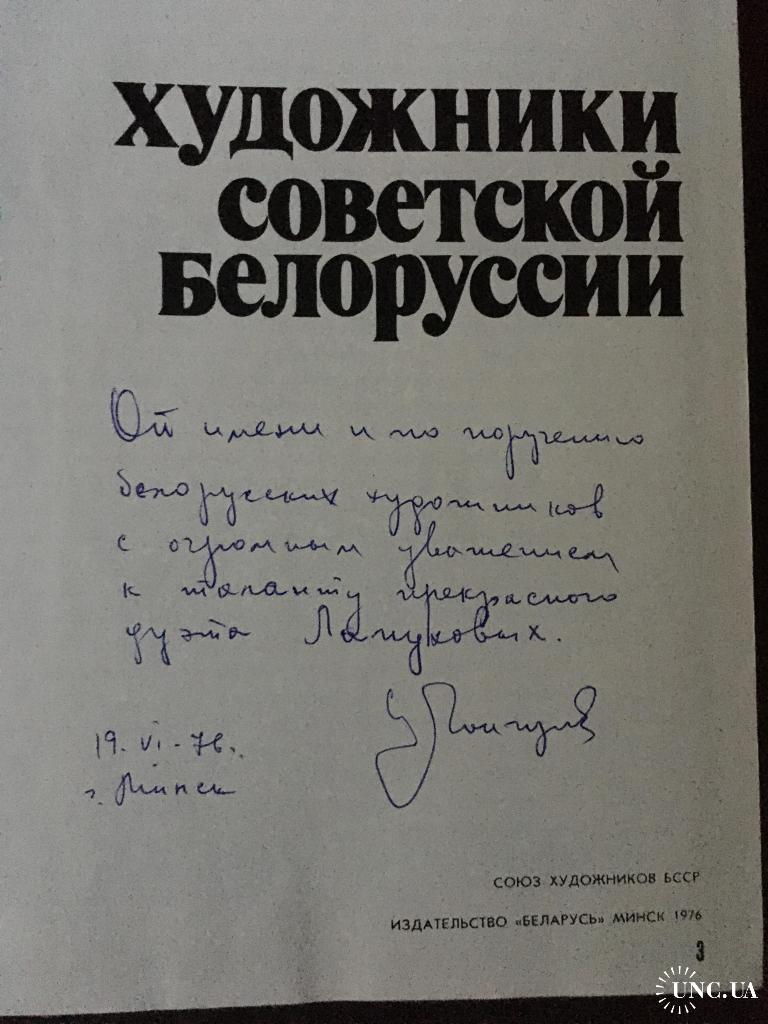 художники
советской
Белоруссии
От имени и по поручению
белорусских художников
с огромным уважением
к таланту прекрасного
дуэта
19. VI - 76.
г. Минск
СОЮЗ ХУДОЖНИКОВ БССР
ИЗДАТЕЛЬСТВО «БЕЛАРУСЬ» МИНСК 1976
3
UNC.UA